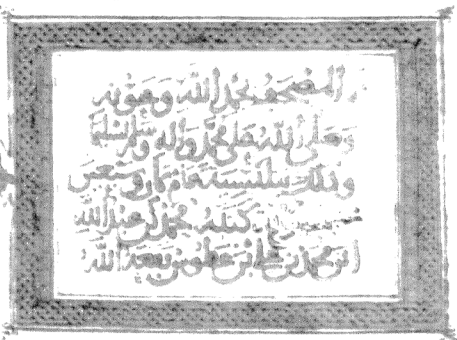 المصحف بحمد الله وعونه
وصلى الله على محمد واله وسلم تسليما
وذلك ببلنسية عام ثمان وسبعين
كتبه محمد بن عبد الله
ابن محمد بن علي ابن غطوس نفعه الله